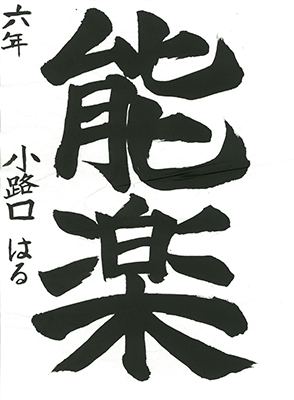 能楽
六年
小路口はる